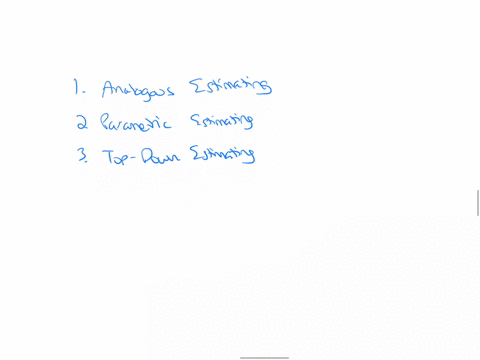 1. Analogous Estimating
2 Parametric Estimating
3. Top-Down Estimating